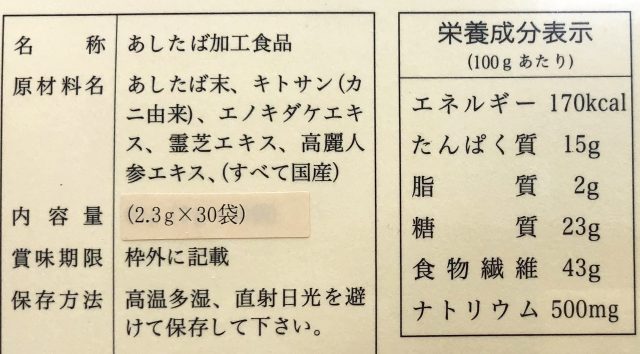 名称 あしたば加工食品
原材料名 あしたば末、キトサン(カ
ニ由来)、エノキダケエキ
ス、霊芝エキス、高麗人
参エキス、(すべて国産)
内容量 (2.3g×30袋)
賞味期限 枠外に記載
保存方法 高温多湿、直射日光を避
けて保存して下さい。
栄養成分表示
(100gあたり)
エネルギー 170kcal
たんぱく質 15g
脂質 2g
糖質 23g
食物繊維 43g
ナトリウム 500mg